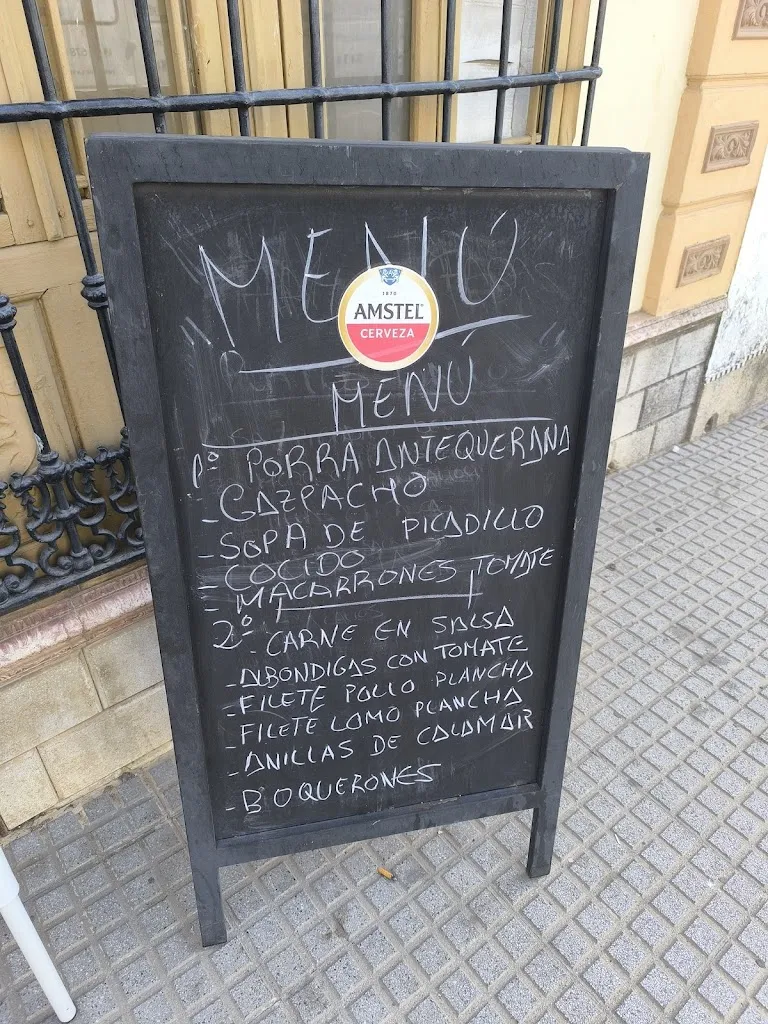 MENÚ
1870
AMSTEL
CERVEZA
MENÚ
1º PORRA ANTEQUERANA
- GAZPACHO
- SOPA DE PICADILLO
- COCIDO
- MACARRONES TOMATE
2º - CARNE EN SALSA
- ALBONDIGAS CON TOMATE
- FILETE POLLO PLANCHA
- FILETE LOMO PLANCHA
- ANILLAS DE CALAMAR
- BOQUERONES